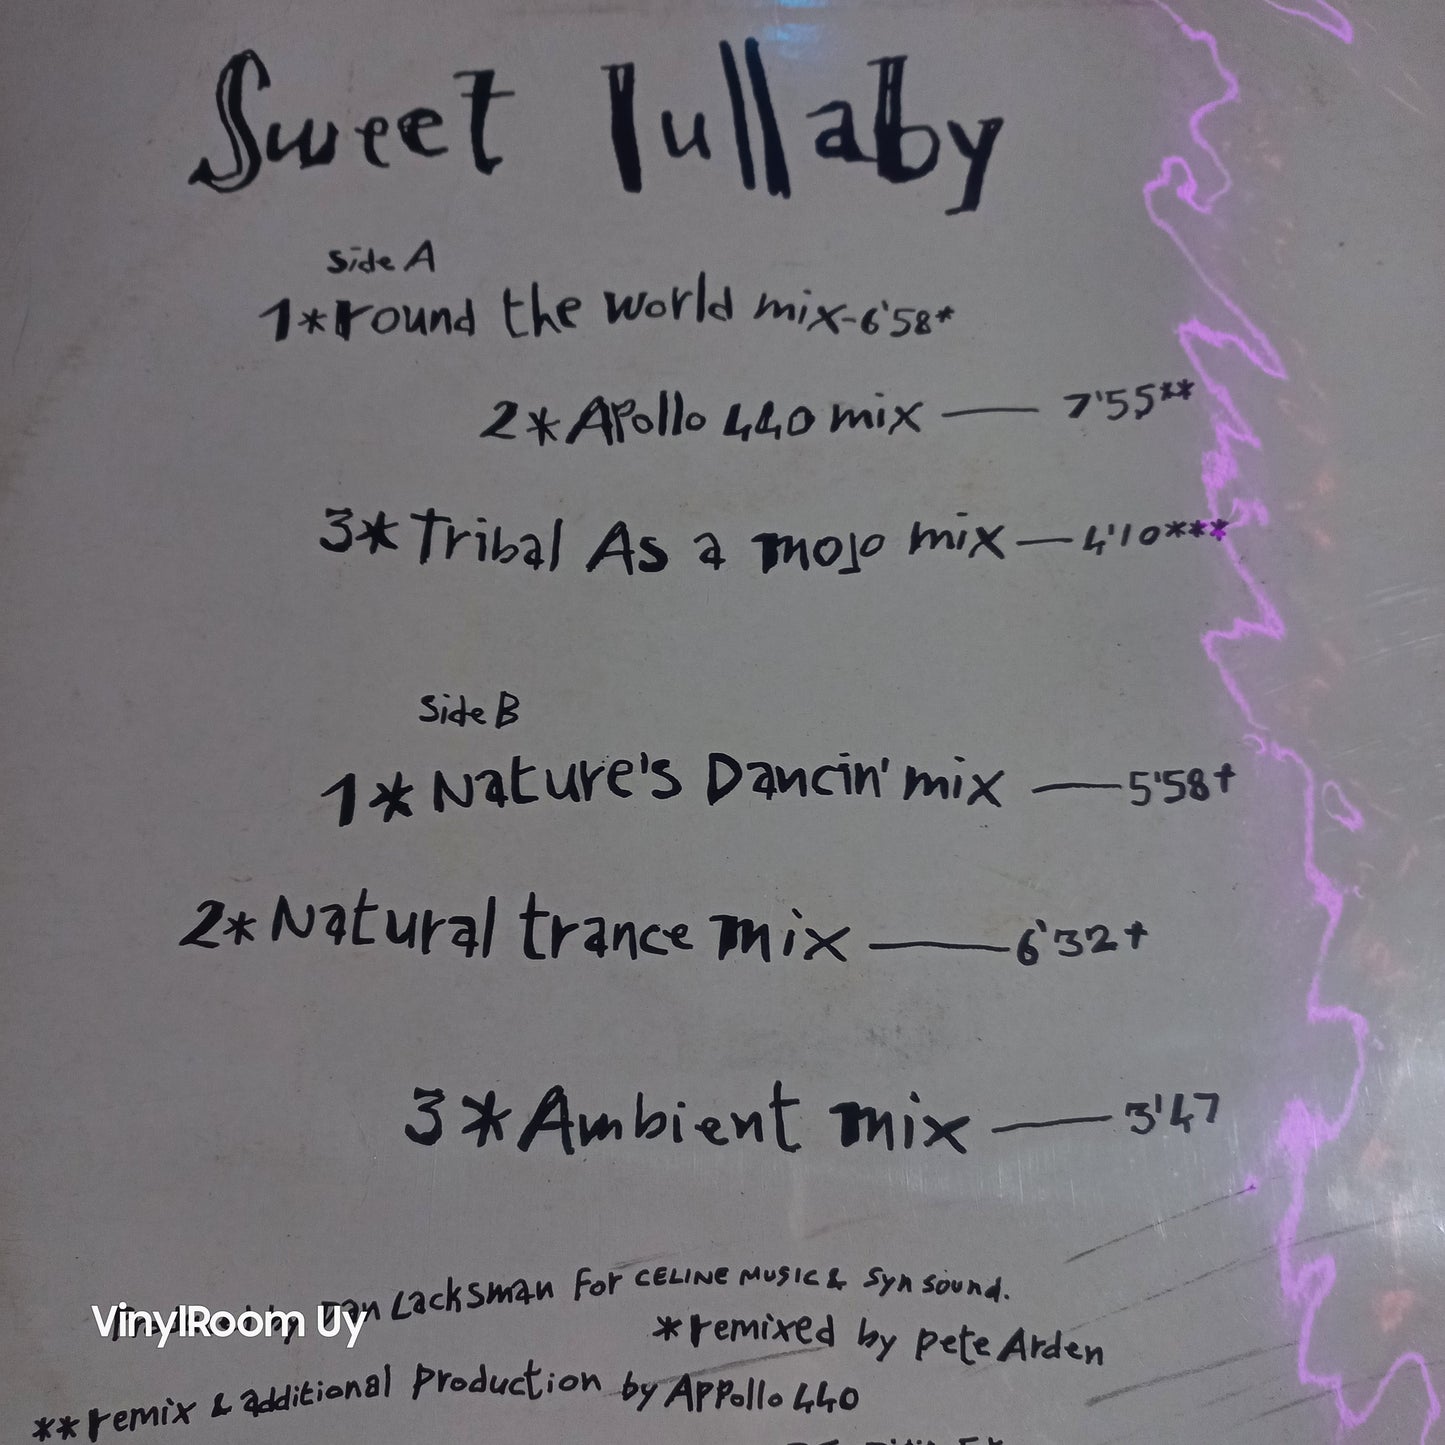 Sweet lullaby
Side A
1*round the world mix-6'58*
2*Apollo 440 mix — 7'55**
3*Tribal As a mojo mix — 4'10***
Side B
1*Nature's Dancin' mix — 5'58+
2*Natural trance mix — 6'32+
3*Ambient mix — 3'47
by Dan Lacksman For CELINE MUSIC & Syn sound.
VinylRoom Uy
*remixed by pete Arden
**remix & additional production by APPollo 440